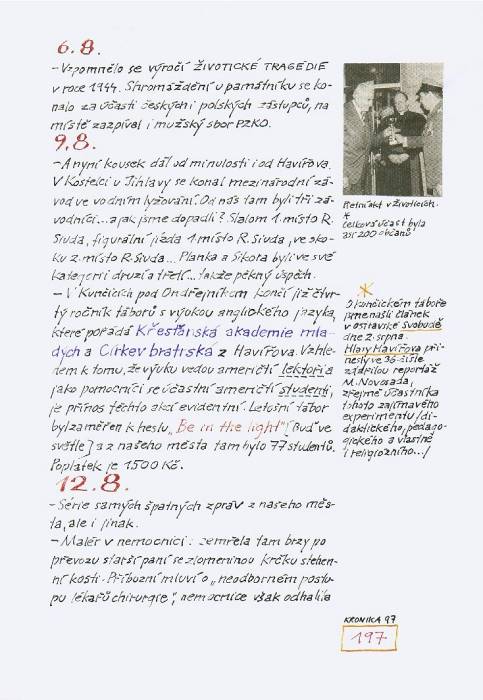 6.8.
- Vzpomnělo se výročí ŽIVOTICKÉ TRAGEDIE
v roce 1944. Shromáždění u památníku se ko-
nalo za účasti českých i polských zástupců, na
místě zazpíval i mužský sbor PZKO.
9.8.
- A nyní kousek dál od minulosti i od Havířova.
V Kostelci u Jihlavy se konal mezinárodní zá-
vod ve vodním lyžování. Od nás tam byli tři zá-
vodníci... a jak jsme dopadli? Slalom 1. místo R.
Siuda, figurální jízda 1 místo R. Siuda, ve sko-
ku 2. místo R. Siuda... Planka a Sikora byli ve své
kategorii druzí a třetí... takže pěkný úspěch.
- V Kunčicích pod Ondřejníkem končí již čtvr-
tý ročník táborů s výukou anglického jazyka,
které pořádá Křesťanská akademie mla-
dých a Církev bratrská z Havířova. Vzhle-
dem k tomu, že výuku vedou američtí lektoři a
jako pomocníci se účastní američtí studenti,
je přínos těchto akcí evidentní. Letošní tábor
byl zaměřen k heslu „Be in the light" [Buď ve
světle] a z našeho města tam bylo 77 studentů.
Poplatek je 1500 Kč.
12.8.
- Série samých špatných zpráv z našeho měs-
ta, ale i jinak.
- Malér v nemocnici: zemřela tam brzy po
převozu starší paní se zlomeninou krčku stehen-
ní kosti. Příbuzní mluví o „neodborném postu-
pu lékařů chirurgie", nemocnice však odhalila
Pietní akt v Životicích.
*
Celková účast byla
asi 200 občanů
*
O kunčickém táboře
jsme našli článek
v ostravské Svobodě
dne 2. srpna.
Hlasy Havířova při-
nesly ve 36. čísle
zdařilou reportáž
M. Novosada,
zřejmě účastníka
tohoto zajímavého
experimentu /di-
daktického, pedago-
gického a vlastně
i religiozního.../
KRONIKA 97
197